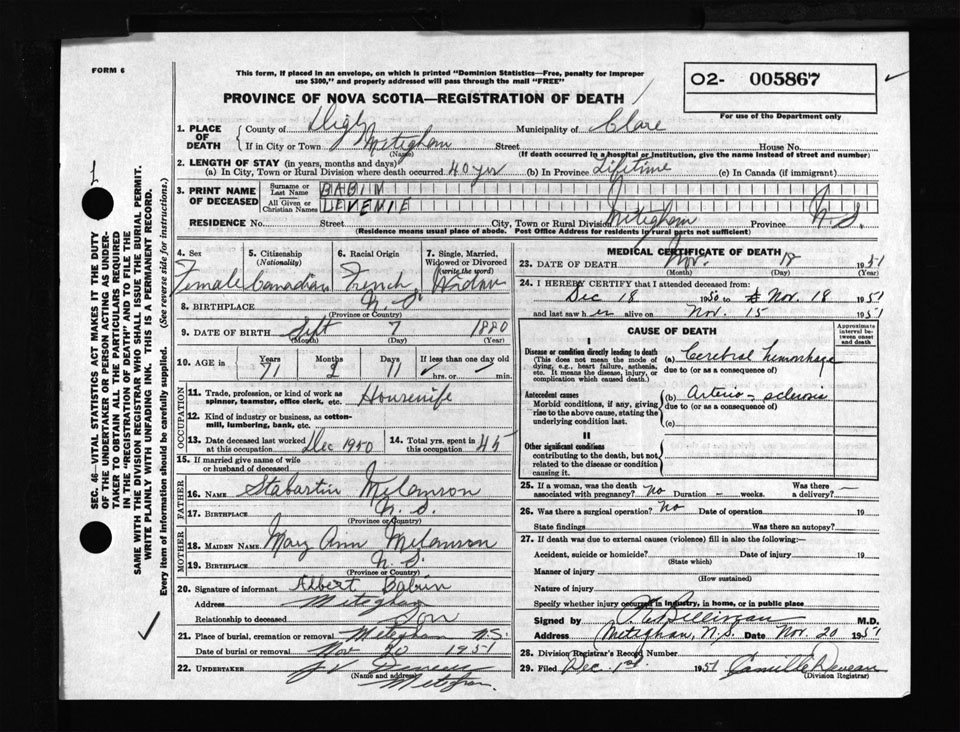 FORM 6
This form, if placed in an envelope, on which is printed "Dominion Statistics—Free, penalty for improper
use $300," and properly addressed will pass through the mail "FREE"
O2- 005867
For use of the Department only
PROVINCE OF NOVA SCOTIA—REGISTRATION OF DEATH
1. PLACE OF DEATH { County of Digby Municipality of Clare
If in City or Town Meteghan Street House No.
(Name) (If death occurred in a hospital or institution, give the name instead of street and number)
2. LENGTH OF STAY (in years, months and days)
(a) In City, Town or Rural Division where death occurred 40 yrs (b) In Province Lifetime (c) In Canada (if immigrant)
3. PRINT NAME OF DECEASED { Surname or Last Name BABIN
All Given or Christian Names LEVENIE
RESIDENCE No. Street City, Town or Rural Division Meteghan Province N.S.
(Residence means usual place of abode. Post Office Address for residents in rural parts not sufficient)
4. Sex 5. Citizenship (Nationality) 6. Racial Origin 7. Single, Married, Widowed or Divorced (write the word)
Female Canadian French Widow
8. BIRTHPLACE N.S.
(Province or Country)
9. DATE OF BIRTH Sept 7 1880
(Month) (Day) (Year)
10. AGE in { Years Months Days If less than one day old
71 2 11 hrs. or min.
OCCUPATION
11. Trade, profession, or kind of work as spinner, teamster, office clerk, etc. Housewife
12. Kind of industry or business, as cotton-mill, lumbering, bank, etc.
13. Date deceased last worked at this occupation Dec 1950 14. Total yrs. spent in this occupation 45
15. If married give name of wife or husband of deceased
FATHER
16. NAME Melanson
17. BIRTHPLACE N.S.
(Province or Country)
MOTHER
18. MAIDEN NAME Mary Ann Melanson
19. BIRTHPLACE N.S.
(Province or Country)
20. Signature of informant Albert Babin
Address Meteghan
Relationship to deceased Son
21. Place of burial, cremation or removal Meteghan N.S.
Date of burial or removal Nov 20 1951
22. UNDERTAKER J.V.
(Name and address) Meteghan.
MEDICAL CERTIFICATE OF DEATH
23. DATE OF DEATH Nov. 18 1951
(Month) (Day) (Year)
24. I HEREBY CERTIFY that I attended deceased from:
Dec 18 1950 to Nov. 18 1951
and last saw her alive on Nov. 15 1951
CAUSE OF DEATH
Approximate interval between onset and death
I
Disease or condition directly leading to death (a) Cerebral hemorrhage
(This does not mean the mode of dying, e.g., heart failure, asthenia, etc. It means the disease, injury, or complication which caused death.)
due to (or as a consequence of)
Antecedent causes (b) Arterio-sclerosis
Morbid conditions, if any, giving rise to the above cause, stating the underlying condition last.
due to (or as a consequence of)
(c)
II
Other significant conditions
contributing to the death, but not related to the disease or condition causing it.
25. If a woman, was the death associated with pregnancy? No Duration – weeks. Was there a delivery? —
26. Was there surgical operation? No Date of operation 19
State findings Was there an autopsy?
27. If death was due to external causes (violence) fill in also the following:—
Accident, suicide or homicide? Date of injury 19
(State which)
Manner of injury
(How sustained)
Nature of injury
Specify whether injury occurred in industry, in home, or in public place
Signed by M.D.
Address Meteghan, N.S. Date Nov. 20 1951
28. Division Registrar's Record Number
29. Filed Dec. 1st 1951 Camille Deveau
(Division Registrar)
SEC. 46—VITAL STATISTICS ACT MAKES IT THE DUTY
OF THE UNDERTAKER OR PERSON ACTING AS UNDER-
TAKER TO OBTAIN ALL THE PARTICULARS REQUIRED
IN THE "REGISTRATION OF DEATH" AND TO FILE THE
SAME WITH THE DIVISION REGISTRAR WHO SHALL ISSUE THE BURIAL PERMIT.
WRITE PLAINLY WITH UNFADING INK. THIS IS A PERMANENT RECORD.
Every item of information should be carefully supplied. (See reverse side for instructions.)